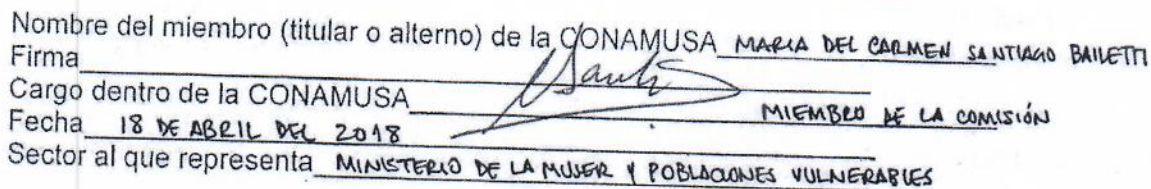 Nombre del miembro (titular o alterno) de la CONAMUSA MARIA DEL CARMEN SANTIAGO BAILETTI
Firma
Cargo dentro de la CONAMUSA MIEMBRO DE LA COMISIÓN
Fecha 18 DE ABRIL DEL 2018
Sector al que representa MINISTERIO DE LA MUJER Y POBLACIONES VULNERABLES